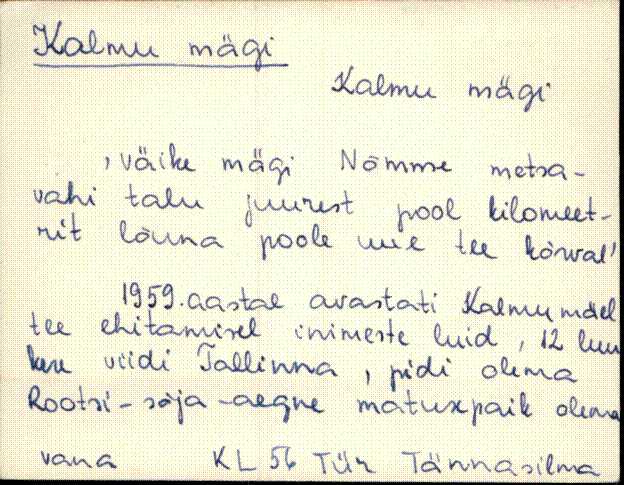 Kalmu mägi
Kalmu mägi
'väike mägi Nõmme metsa-
vahi talu juurest pool kilomeet-
rit lõuna poole uue tee kõrval'
1959. aastal avastati Kalmu mäel
tee ehitamisel inimeste luid, 12 luu
kere viidi Tallinna, pidi olema
Rootsi-sõja-aegne matusepaik olema
vana KL 56 Tür Tännasilma